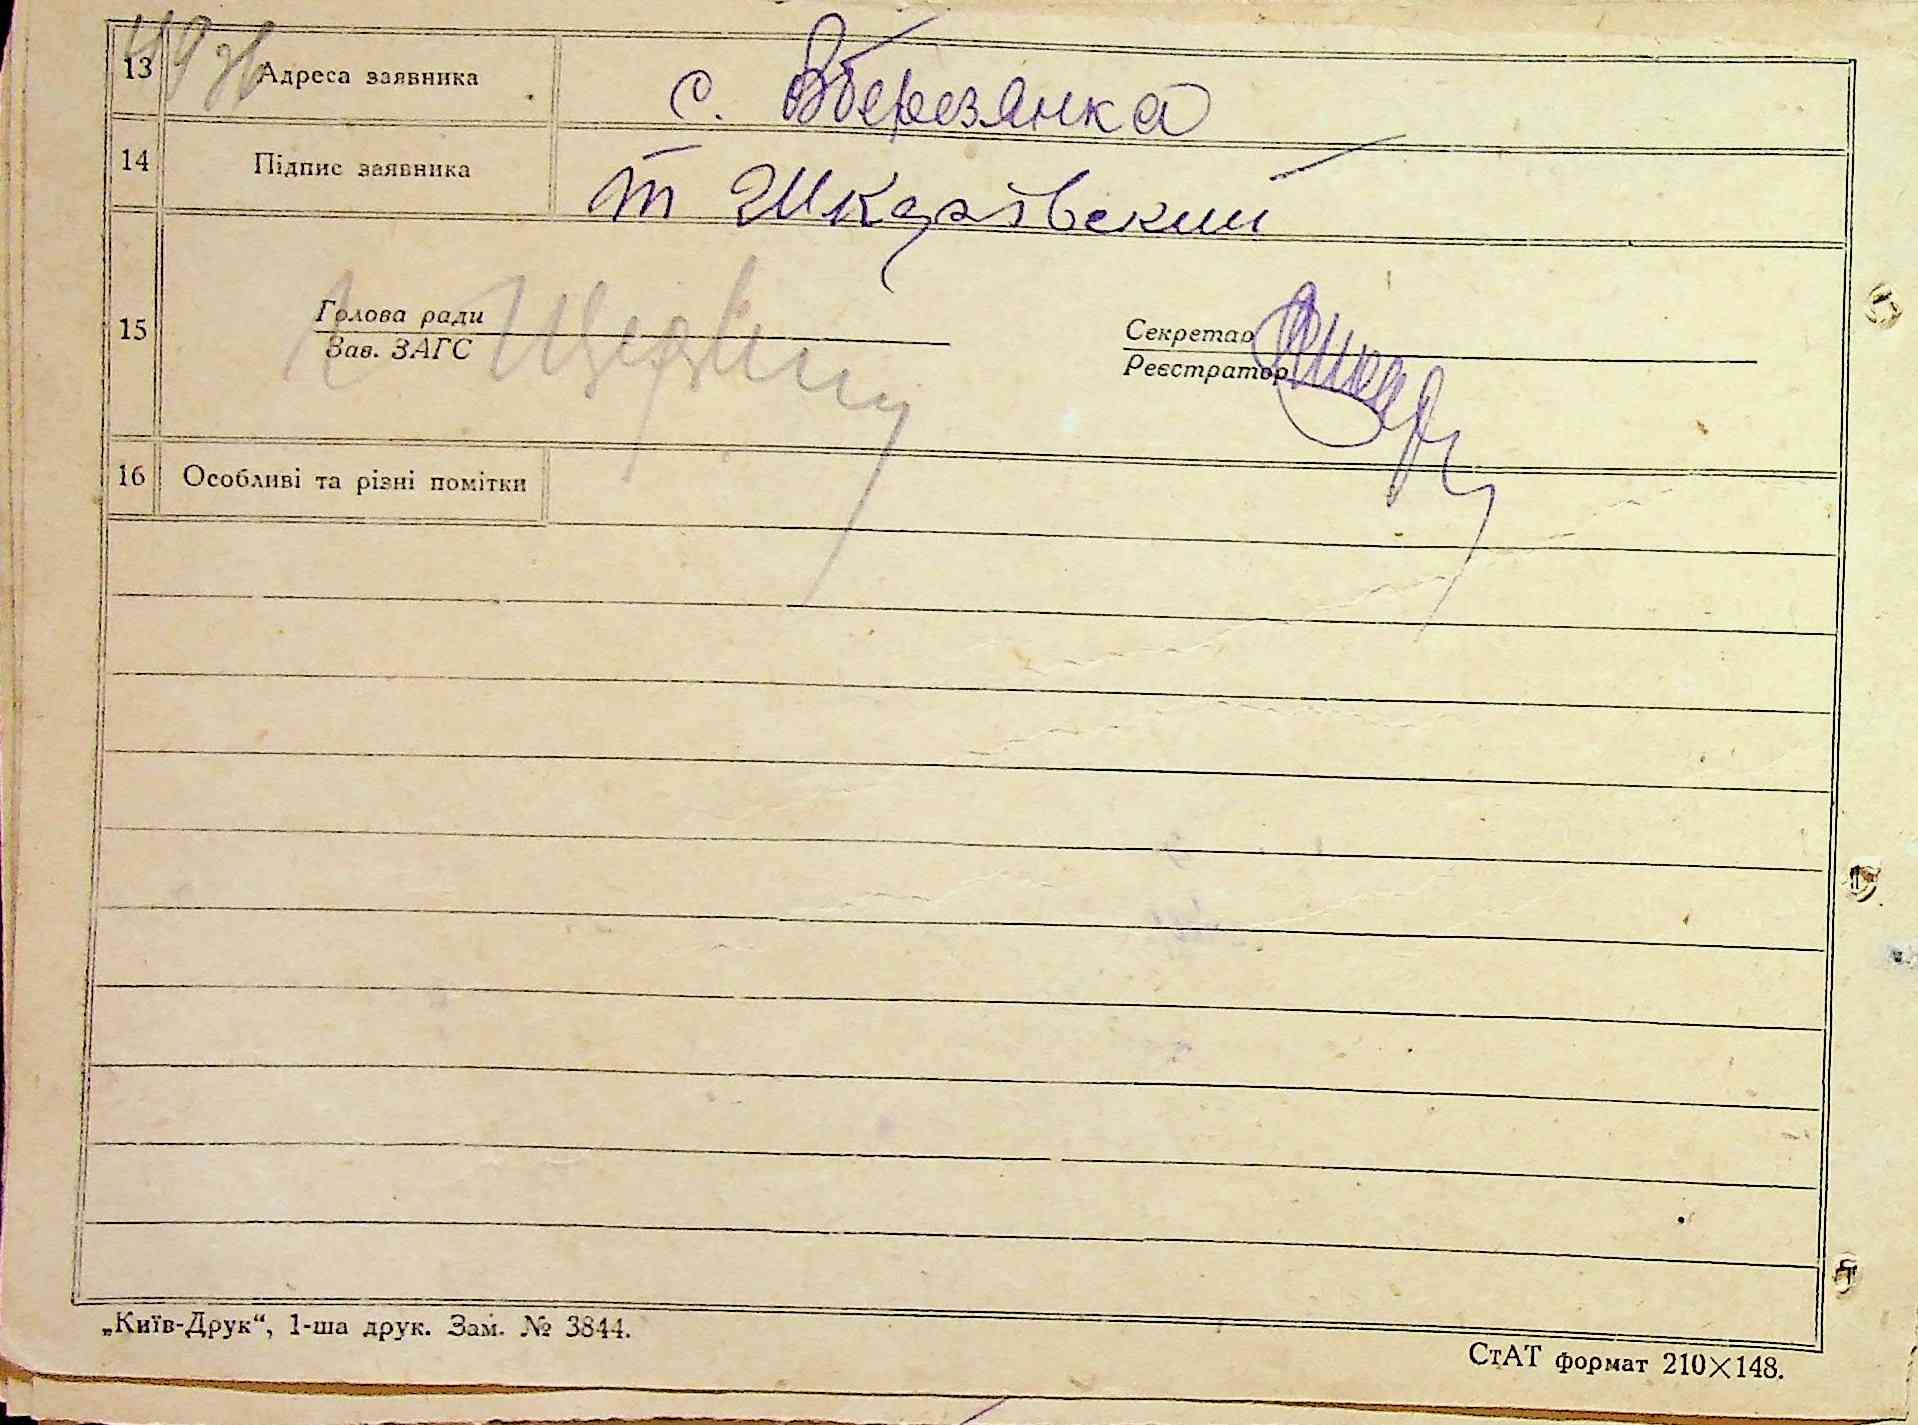 49 зв
13 Адреса заявника с. Вберезянка
14 Підпис заявника т Шкаравский
15 Голова ради Секретар
Зав. ЗАГС Реєстратор
16 Особливі та різні помітки
„Київ-Друк“, 1-ша друк. Зам. № 3844.
СтАТ формат 210×148.